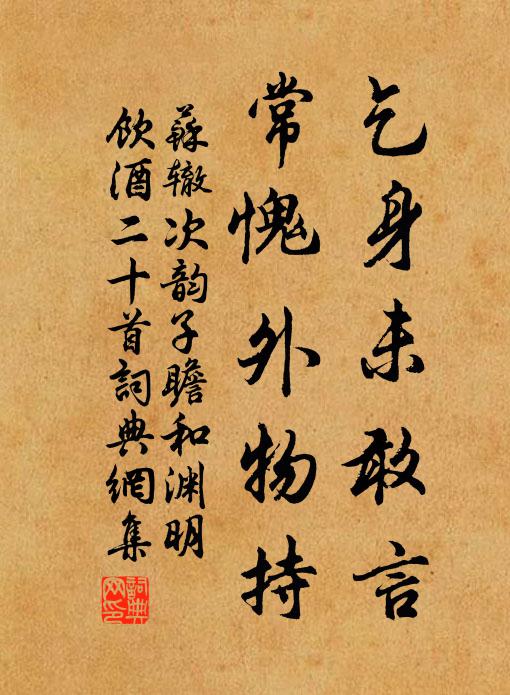 乞身未敢言
常愧外物持
蘇辙次韵子瞻和渊明
飲酒二十首詞典網集
詞典
网印